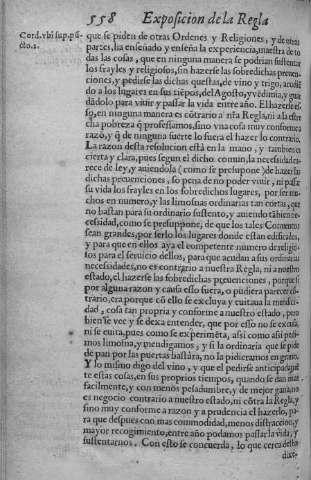 558 Exposicion de la Regla
Cord. vbi sup. pū
cto. 2.
que se piden de otras Ordenes y Religiones, y de otras
partes, ha enseñado y enseña la experiencia, maestra de to
das las cosas, que en ninguna manera se podrian sustentar
los frayles y religiosos, sin hazerse las sobredichas preuen-
ciones, y pedirse las dichas questas, de vino y trigo, acudiē
do a los lugares en sus tiēpos, del Agosto, y vēdimia, y guar
dādolo para viuir y passar la vida entre año. El hazerse es-
so, en ninguna manera es cōtrario a nr̄a Regla, ni a la estre
cha pobreza q̄ professamos, sino vna cosa muy conforme a
razō, y q̄ de ninguna suerte lo fuera el hazer lo contrario.
La razon desta resolucion està en la mano, y tambien es
cierta y clara, pues segun el dicho comun, la necessidad ca-
rece de ley, y auiendola (como se presupone) de hazer las
dichas preuenciones, so pena de no poder viuir, ni passar
su vida los frayles en los sobredichos lugares, por ser mu-
chos en numero, y las limosnas ordinarias tan cortas, que
no bastan para su ordinario sustento, y auiendo tābien ne-
cessidad, como se presupone, de que los tales Conuentos
sean grandes, por serlo los lugares donde estan edificados,
y para que en ellos aya el competente numero de religio-
sos para el seruicio dellos, para que acudan a sus ordinarias
necessidades, no es contrario a nuestra Regla, ni a nuestro
estado, el hazerse las sobredichas preuenciones, porque si
por alguna razon y causa esso fuera, o pudiera parecer cō-
trario, era porque cō ello se excluya y euitaua la mendici-
dad, cosa tan propria y conforme a nuestro estado, pero
bien se vee y se dexa entender, que por esso no se escusa,
ni se euita, pues como se experimēta, assi como assi pedi-
mos limosna, y mendigamos, y si la ordinaria que se pide
de pan por las puertas bastàra, no la pidieramos en grano.
Y lo mismo digo del vino, y que el pedirse anticipadamē
te estas cosas, en sus proprios tiempos, quando se dan mas
facilmente, y con menos pesadumbre, y de mejor gana, no
es negocio contrario a nuestro estado, ni cōtra la Regla, y
sino muy conforme a razon y a prudencia el hazerlo, pa-
ra que despues con mas commodidad, menos distraccion, y
mayor recogimiento, entre año podamos passar la vida, y
sustentarnos. Con esto se concuerda, lo que cerca desto
dixe-